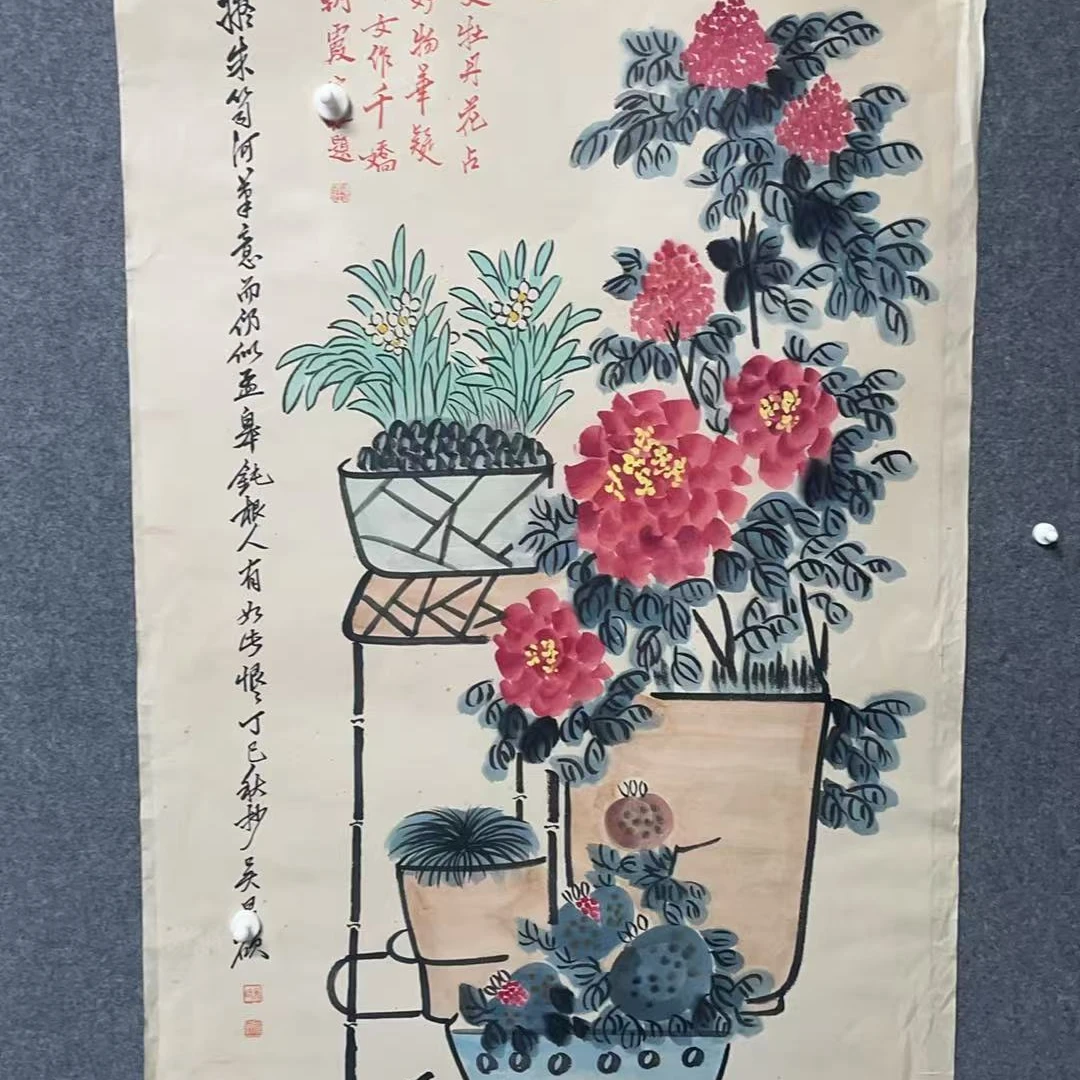 牡丹花占
物華疑
女作千嬌
霞
題
擬朱笥河筆意而仍似孟皋鈍根人有如此恨〻丁巳秋抄吳
碩